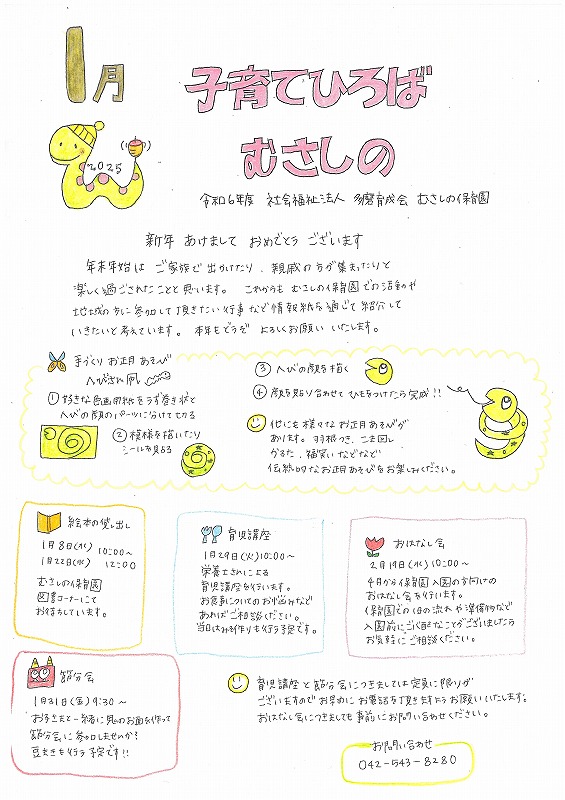 1月
子育てひろば
むさしの
2025
令和6年度 社会福祉法人 多磨育成会 むさしの保育園
新年 あけまして おめでとう ございます
年末年始は ご家族で出かけたり、親戚の方が集まったりと
楽しく過ごされたことと思います。 これからも むさしの保育園での活動や
地域の方に参加して頂きたい行事など情報紙を通じて紹介して
いきたいと考えています。 本年もどうぞ よろしくお願い いたします。
手づくり お正月あそび
へびさん凧
① 好きな色画用紙をうず巻き状と
へびの顔のパーツに分けて切る
② 模様を描いたり
シールを貼る
③ へびの顔を描く
④ 顔を貼り合わせて ひもをつけたら完成!!
他にも様々なお正月あそびが
あります。羽根つき、こま回し
かるた、福笑いなどなど
伝統的なお正月あそびをお楽しみください。
絵本の貸し出し
1月8日(水) 10:00〜
1月22日(水) 12:00
むさしの保育園
図書コーナーにて
お待ちしています。
育児講座
1月29日(水)10:00〜
栄養士さんによる
育児講座を行います。
お食事についてのお悩みなど
あればご相談ください。
当日はみそ作りも行う予定です。
おはなし会
2月19日(水)10:00〜
4月から保育園入園の方向けの
おはなし会を行います。
保育園での1日の流れや準備物など
入園前にご心配なことがございましたら
お気軽にご相談ください。
節分会
1月31日(金)9:30〜
お子さまと一緒に鬼のお面を作って
節分会に参加しませんか?
豆まきも行う予定です!!
育児講座と節分会につきましては定員に限りが
ございますので お早めにお電話を頂きますようお願いいたします。
おはなし会につきましても事前にお問い合わせください。
お問い合わせ
042-543-8280